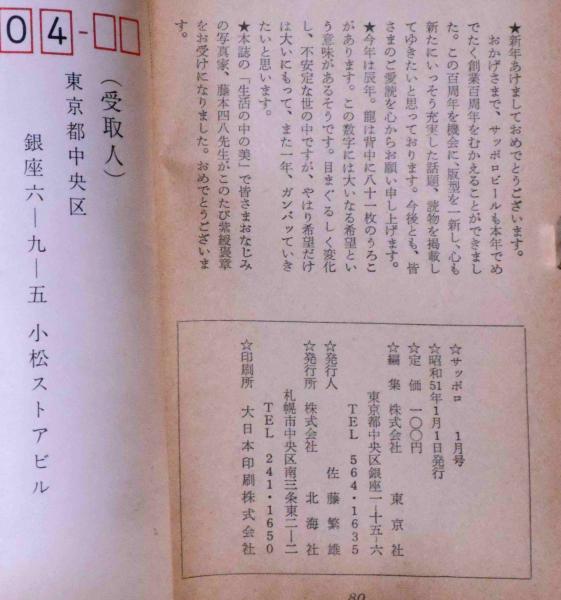 ★新年あけましておめでとうございます。
おかげさまで、サッポロビールも本年でめ
でたく創業百周年をむかえることができまし
た。この百周年を機会に、版型を一新し、心も
新たにいっそう充実した話題、読物を掲載し
てゆきたいと思っております。今後とも、皆
さまのご愛読を心からお願い申し上げます。
★今年は辰年。龍は背中に八十一枚のうろこ
があります。この数字には大いなる希望とい
う意味があるそうです。目まぐるしく変化
し、不安定な世の中ですが、やはり希望だけ
は大いにもって、また一年、ガンバッていき
たいと思います。
★本誌の「生活の中の美」で皆さまおなじみ
の写真家、藤本四八先生がこのたび紫綬褒章
をお受けになりました。おめでとうございま
す。
☆サッポロ 1月号
☆昭和51年1月1日発行
☆定価 一〇〇円
☆編集 株式会社 東京社
東京都中央区銀座一ー十五ー六
TEL 564・1635
☆発行人 佐藤繁雄
☆発行所 株式会社 北海社
札幌市中央区南三条東二ー二
TEL 241・1650
☆印刷所 大日本印刷株式会社
80
04-
(受取人)
東京都中央区
銀座六ー九ー五 小松ストアビル